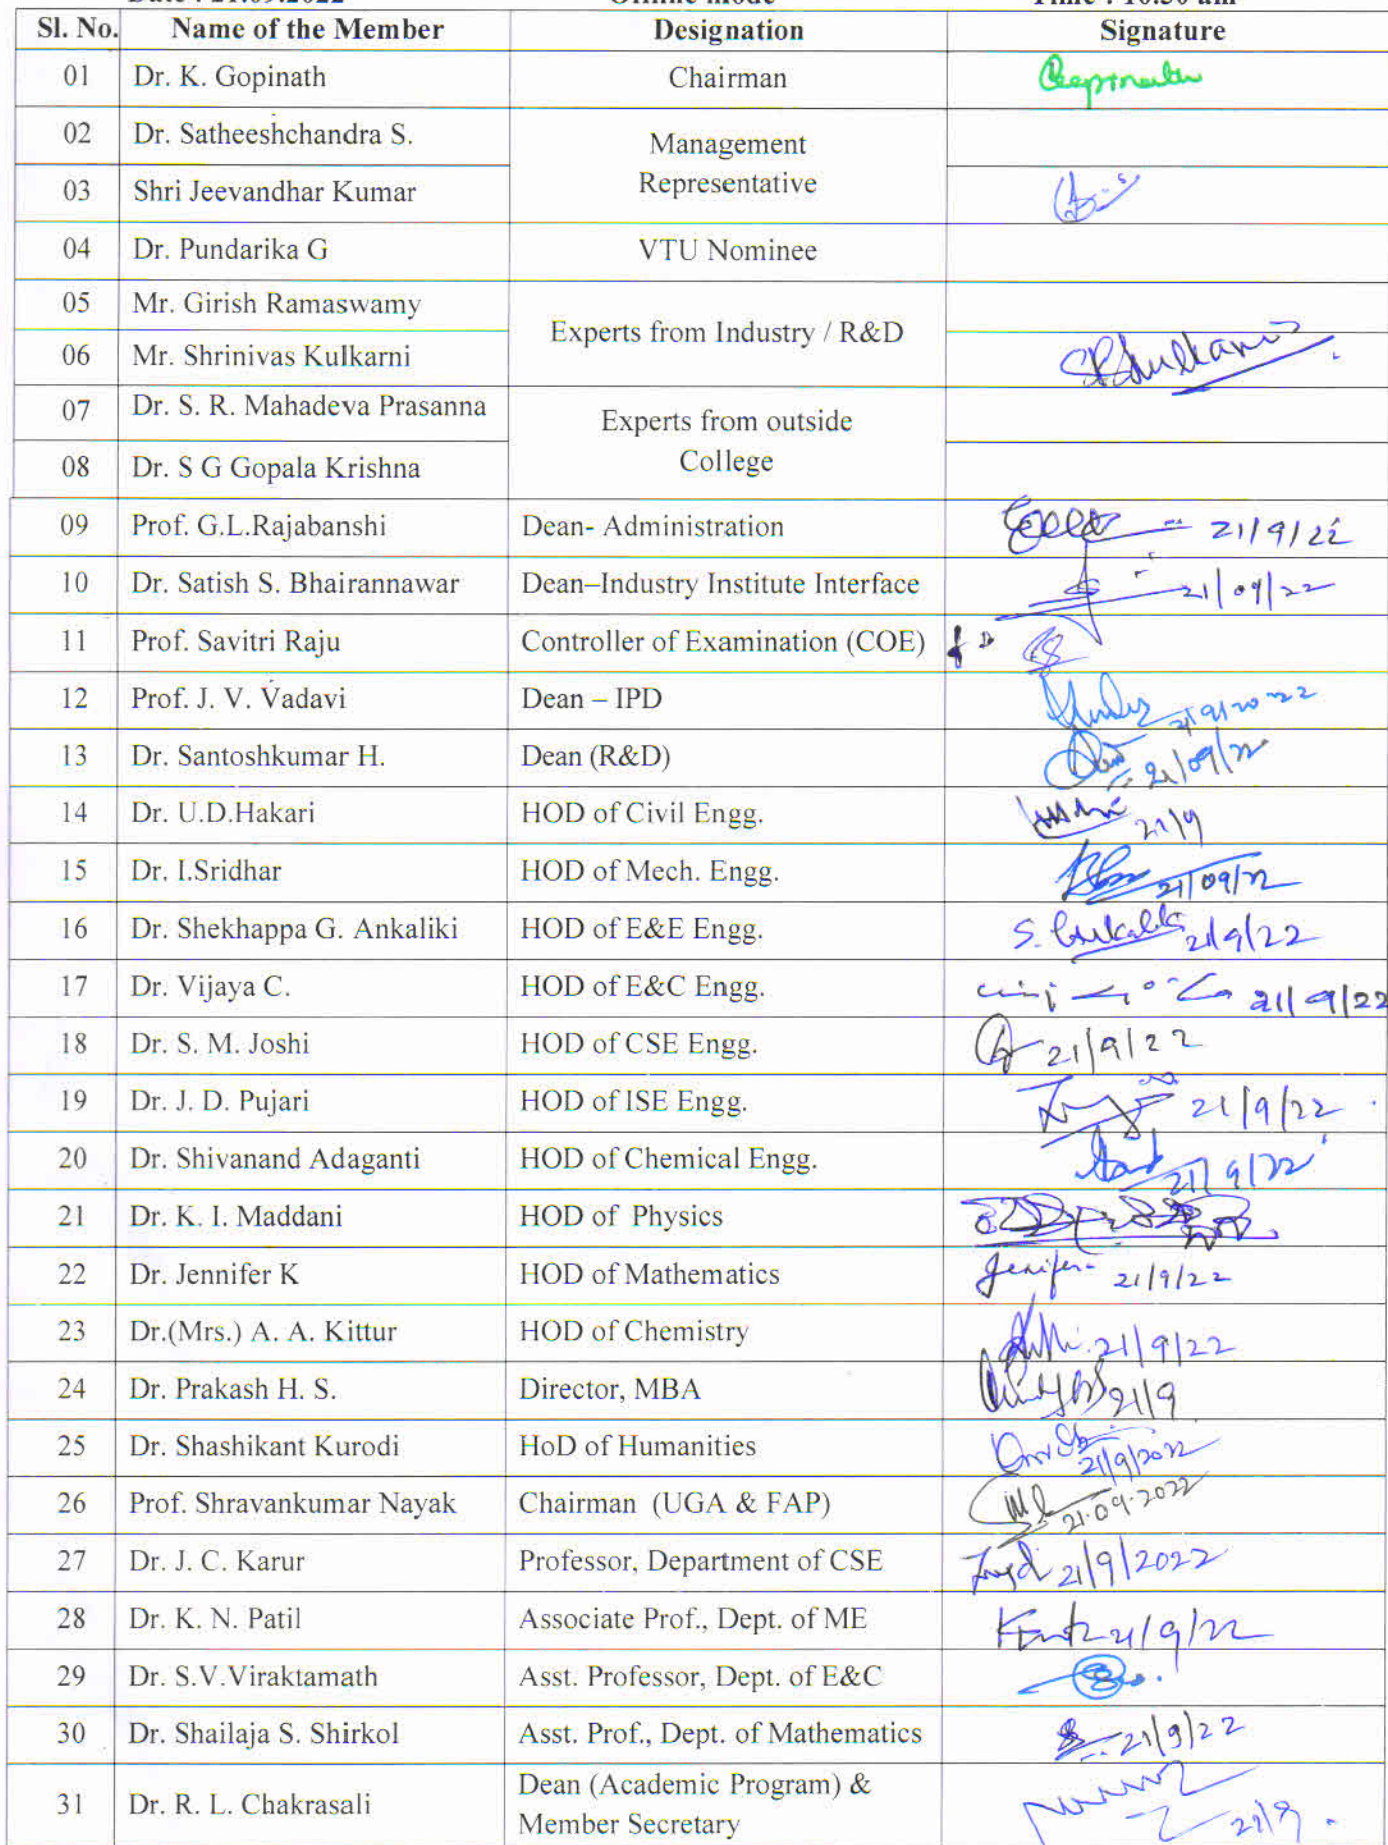 Date : 21.09.2022 Offline mode Time : 10.30 am
Sl. No. Name of the Member Designation Signature
01 Dr. K. Gopinath Chairman
02 Dr. Satheeshchandra S. Management Representative
03 Shri Jeevandhar Kumar
04 Dr. Pundarika G VTU Nominee
05 Mr. Girish Ramaswamy Experts from Industry / R&D
06 Mr. Shrinivas Kulkarni
07 Dr. S. R. Mahadeva Prasanna Experts from outside College
08 Dr. S G Gopala Krishna
09 Prof. G.L.Rajabanshi Dean- Administration 21/9/22
10 Dr. Satish S. Bhairannawar Dean–Industry Institute Interface 21/09/22
11 Prof. Savitri Raju Controller of Examination (COE)
12 Prof. J. V. Vadavi Dean – IPD 21/9/2022
13 Dr. Santoshkumar H. Dean (R&D) 21/09/22
14 Dr. U.D.Hakari HOD of Civil Engg. 21/9
15 Dr. I.Sridhar HOD of Mech. Engg. 21/09/22
16 Dr. Shekhappa G. Ankaliki HOD of E&E Engg. 21/9/22
17 Dr. Vijaya C. HOD of E&C Engg. 21/9/22
18 Dr. S. M. Joshi HOD of CSE Engg. 21/9/22
19 Dr. J. D. Pujari HOD of ISE Engg. 21/9/22
20 Dr. Shivanand Adaganti HOD of Chemical Engg. 21/9/22
21 Dr. K. I. Maddani HOD of Physics
22 Dr. Jennifer K HOD of Mathematics 21/9/22
23 Dr.(Mrs.) A. A. Kittur HOD of Chemistry 21/9/22
24 Dr. Prakash H. S. Director, MBA 21/9
25 Dr. Shashikant Kurodi HoD of Humanities 21/9/2022
26 Prof. Shravankumar Nayak Chairman (UGA & FAP) 21.09.2022
27 Dr. J. C. Karur Professor, Department of CSE 21/9/2022
28 Dr. K. N. Patil Associate Prof., Dept. of ME 21/9/22
29 Dr. S.V.Viraktamath Asst. Professor, Dept. of E&C
30 Dr. Shailaja S. Shirkol Asst. Prof., Dept. of Mathematics 21/9/22
31 Dr. R. L. Chakrasali Dean (Academic Program) & Member Secretary 21/9